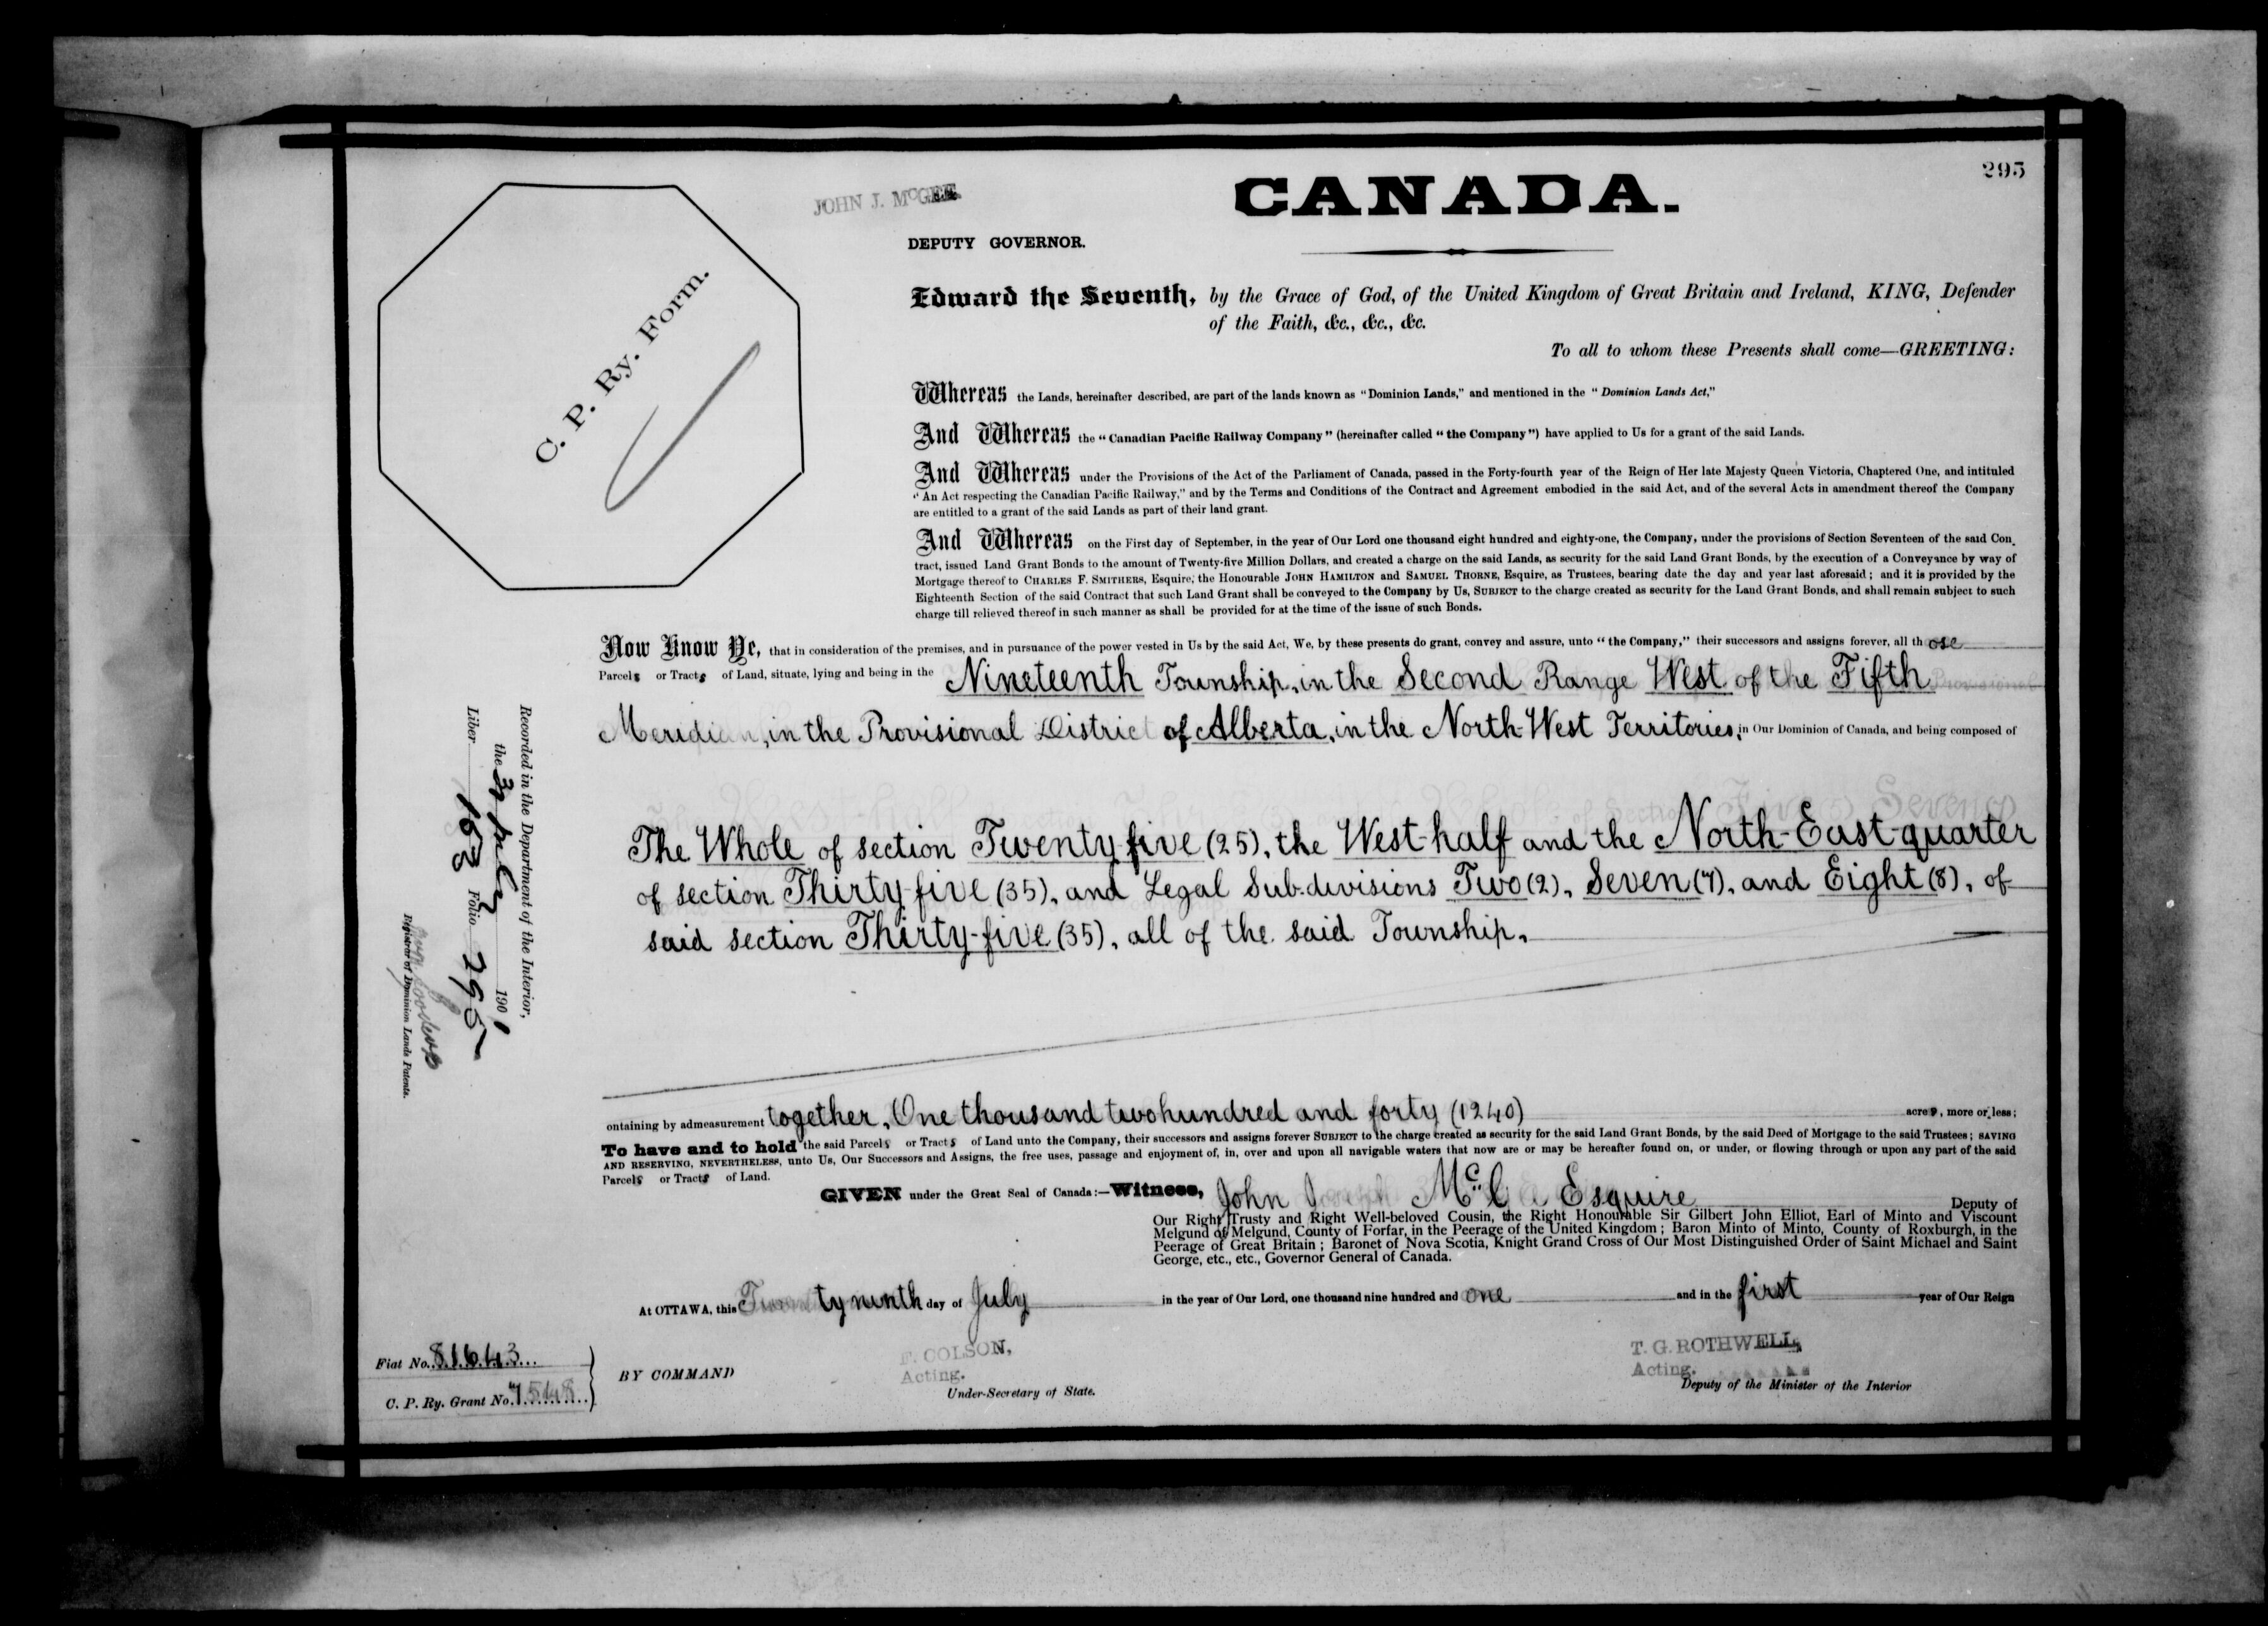 295
JOHN J. McGEE
CANADA.
DEPUTY GOVERNOR.
C. P. Ry. Form.
Edward the Seventh, by the Grace of God, of the United Kingdom of Great Britain and Ireland, KING, Defender
of the Faith, &c., &c., &c.
To all to whom these Presents shall come—GREETING:
Whereas the Lands, hereinafter described, are part of the lands known as "Dominion Lands," and mentioned in the "Dominion Lands Act,"
And Whereas the "Canadian Pacific Railway Company" (hereinafter called "the Company") have applied to Us for a grant of the said Lands.
And Whereas under the Provisions of the Act of the Parliament of Canada, passed in the Forty-fourth year of the Reign of Her late Majesty Queen Victoria, Chaptered One, and intituled
"An Act respecting the Canadian Pacific Railway," and by the Terms and Conditions of the Contract and Agreement embodied in the said Act, and of the several Acts in amendment thereof the Company
are entitled to a grant of the said Lands as part of their land grant.
And Whereas on the First day of September, in the year of Our Lord one thousand eight hundred and eighty-one, the Company, under the provisions of Section Seventeen of the said Con-
tract, issued Land Grant Bonds to the amount of Twenty-five Million Dollars, and created a charge on the said Lands, as security for the said Land Grant Bonds, by the execution of a Conveyance by way of
Mortgage thereof to CHARLES F. SMITHERS, Esquire, the Honourable JOHN HAMILTON and SAMUEL THORNE, Esquire, as Trustees, bearing date the day and year last aforesaid; and it is provided by the
Eighteenth Section of the said Contract that such Land Grant shall be conveyed to the Company by Us, SUBJECT to the charge created as security for the Land Grant Bonds, and shall remain subject to such
charge till relieved thereof in such manner as shall be provided for at the time of the issue of such Bonds.
Now Know Ye, that in consideration of the premises, and in pursuance of the power vested in Us by the said Act, We, by these presents do grant, convey and assure, unto "the Company," their successors and assigns forever, all those
Parcels or Tracts of Land, situate, lying and being in the Nineteenth Township, in the Second Range West of the Fifth
Meridian, in the Provisional District of Alberta, in the North-West Territories, in Our Dominion of Canada, and being composed of
The Whole of section Twenty-five (25), the West-half and the North-East-quarter
of section Thirty-five (35), and Legal Sub-divisions Two (2), Seven (7), and Eight (8), of
said section Thirty-five (35), all of the said Township.
Recorded in the Department of the Interior,
the 190 1
Liber 163 Folio 295
Registrar of Dominion Lands Patents.
ontaining by admeasurement together, One thousand two hundred and forty (1240) acres, more or less;
To have and to hold the said Parcels or Tracts of Land unto the Company, their successors and assigns forever SUBJECT to the charge created as security for the said Land Grant Bonds, by the said Deed of Mortgage to the said Trustees; SAVING
AND RESERVING, NEVERTHELESS, unto Us, Our Successors and Assigns, the free uses, passage and enjoyment of, in, over and upon all navigable waters that now are or may be hereafter found on, or under, or flowing through or upon any part of the said
Parcels or Tracts of Land.
GIVEN under the Great Seal of Canada:—Witness, John Joseph McGee Esquire Deputy of
Our Right Trusty and Right Well-beloved Cousin, the Right Honourable Sir Gilbert John Elliot, Earl of Minto and Viscount
Melgund of Melgund, County of Forfar, in the Peerage of the United Kingdom; Baron Minto of Minto, County of Roxburgh, in the
Peerage of Great Britain; Baronet of Nova Scotia, Knight Grand Cross of Our Most Distinguished Order of Saint Michael and Saint
George, etc., etc., Governor General of Canada.
At OTTAWA, this Twenty ninth day of July in the year of Our Lord, one thousand nine hundred and one and in the first year of Our Reign
Fiat No. 81643
C. P. Ry. Grant No. 7548
BY COMMAND
F. COLSON,
Acting.
Under-Secretary of State.
T. G. ROTHWELL,
Acting.
Deputy of the Minister of the Interior